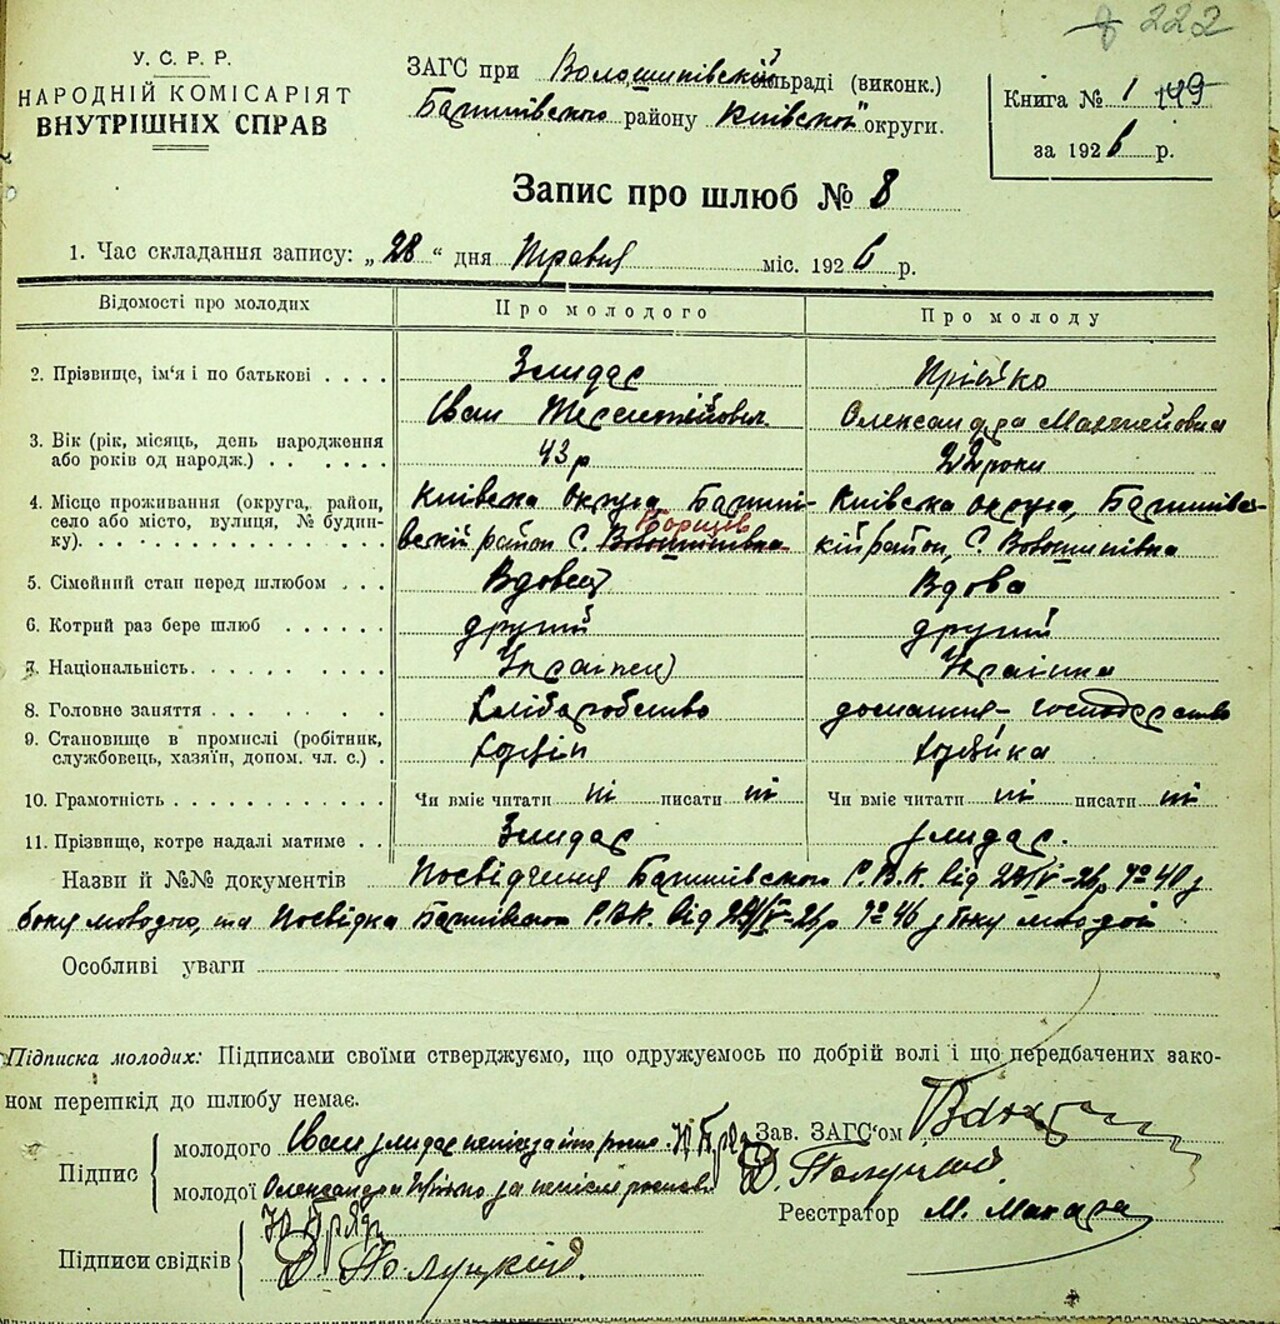 222
У. С. Р. Р.
НАРОДНІЙ КОМІСАРІЯТ
ВНУТРІШНІХ СПРАВ
ЗАГС при Волошинівській сільраді (виконк.)
Баришівського району Київської округи.
Книга № 1 149
за 1926 р.
Запис про шлюб № 8
1. Час складання запису: „28“ дня Травня міс. 1926 р.
Відомості про молодих Про молодого Про молоду
2. Прізвище, ім'я і по батькові . . . . Злидар
Іван Терентійович Олександра Матвійовна
3. Вік (рік, місяць, день народження
або років од народж.) . . . . . . 43 р 22 роки
4. Місце проживання (округа, район,
село або місто, вулиця, № будин-
ку). Київська округа, Баришівський район С. Волошинівка Борщів Київська округа, Баришівський район, С. Волошинівка
5. Сімейний стан перед шлюбом . . . Вдовець Вдова
6. Котрий раз бере шлюб . . . . . . другий другий
7. Національність. . . . . . . . . . Українець Українка
8. Головне заняття . . . . . . . Хліборобство домашнє господарство
9. Становище в промислі (робітник,
службовець, хазяїн, допом. чл. с.) . Хазяїн Хазяйка
10. Грамотність . . . . . . . . . . . . Чи вміє читати ні писати ні Чи вміє читати ні писати ні
11. Прізвище, котре надалі матиме . . Злидар Злидар.
Назви й №№ документів Посвідчення Баришівського Р.В.К. від -26р № 40 з
боку молодого, та Посвідка Баришівського Р.В.К. від -26р № 46 з боку молодой
Особливі уваги
Підписка молодих: Підписами своїми стверджуємо, що одружуємось по добрій волі і що передбачених зако-
ном перешкід до шлюбу немає.
Підпис молодого Іван Злидар Зав. ЗАГС'ом
молодої Олександра за
Реєстратор М. Макара
Підписи свідків